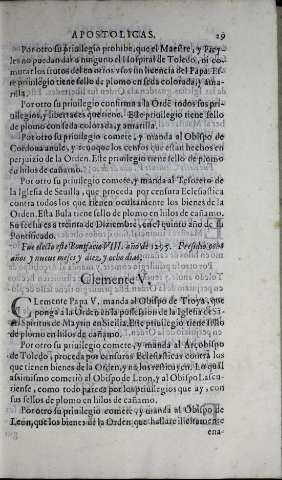 APOSTOLICAS. 29
Por otro su priuilegio prohibe, que el Maestre, y Frey-
les no puedan dar a ninguno el Hospital de Toledo, ni co-
mutar los frutos del en otros vsos sin licencia del Papa. Es-
te priuilegio tiene sello de plomo en seda colorada, y ama-
rilla.
Por otro su priuilegio confirma a la Ordē todos sus pri-
uilegios, y libertades que tiene. Este priuilegio tiene sello
de plomo en seda colorada, y amarilla.
Por otro su priuilegio comete, y manda al Obispo de
Cordoua anule, y reuoque los censos que estan hechos en
perjuizio de la Orden. Este priuilegio tiene sello de plomo
en hilos de cañamo.
Por otro su priuilegio comete, y manda al Tesorero de
la Iglesia de Seuilla, que proceda por censura Eclesiastica
contra todos los que tienen ocultamente los bienes de la
Orden. Esta Bula tiene sello de plomo en hilos de cañamo.
Su fecha es a treinta de Diziembre, en el quinto año de su
Pontificado.
Fue electo este Bonifacio VIII. año de 1295. Presidio ocho
años y nueue meses y diez y ocho dias.
Clemente V.
CLemente Papa V. manda al Obispo de Troya, que
ponga a la Orden en la possession de la Iglesia de Sā-
ti Spiritus de Mayrin en Sicilia. Este priuilegio tiene sello
de plomo en hilos de cañamo.
Por otro su priuilegio comete, y manda al Arçobispo
de Toledo, proceda por censuras Eclesiasticas contra los
que tienen bienes de la Orden, y no los restituyen. Lo qual
assimismo cometiò al Obispo de Leon, y al Obispo Lascu-
riense, como todo parece por los priuilegios que ay, con
sus sellos de plomo en hilos de cañamo.
Por otro su priuilegio comete, y manda al Obispo de
Leon, que los bienes de la Orden, que hallare ilicitamente
ena-